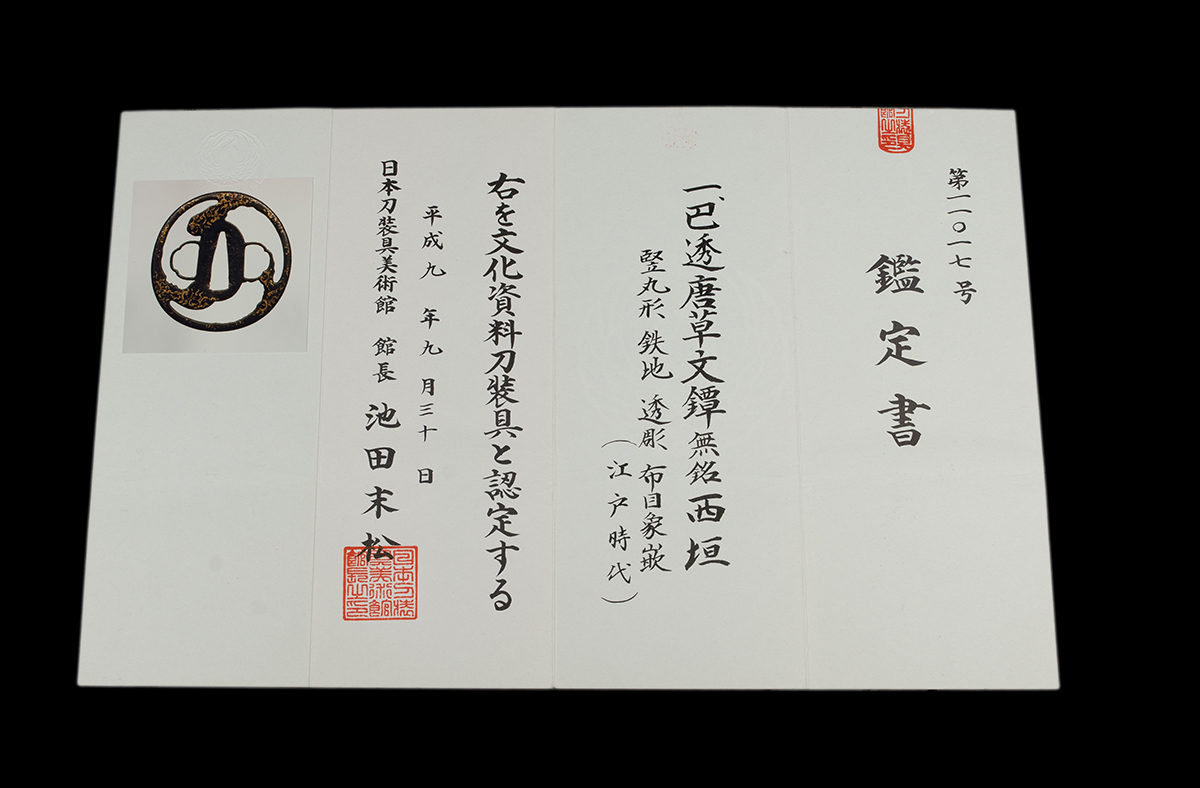 第一一〇一七号
鑑定書
一、巴透唐草文鐔 無銘 西垣
竪丸形 鉄地 透彫 布目象嵌
（江戸時代）
右を文化資料刀装具と認定する
平成九年九月三十日
日本刀装具美術館 館長 池田末松